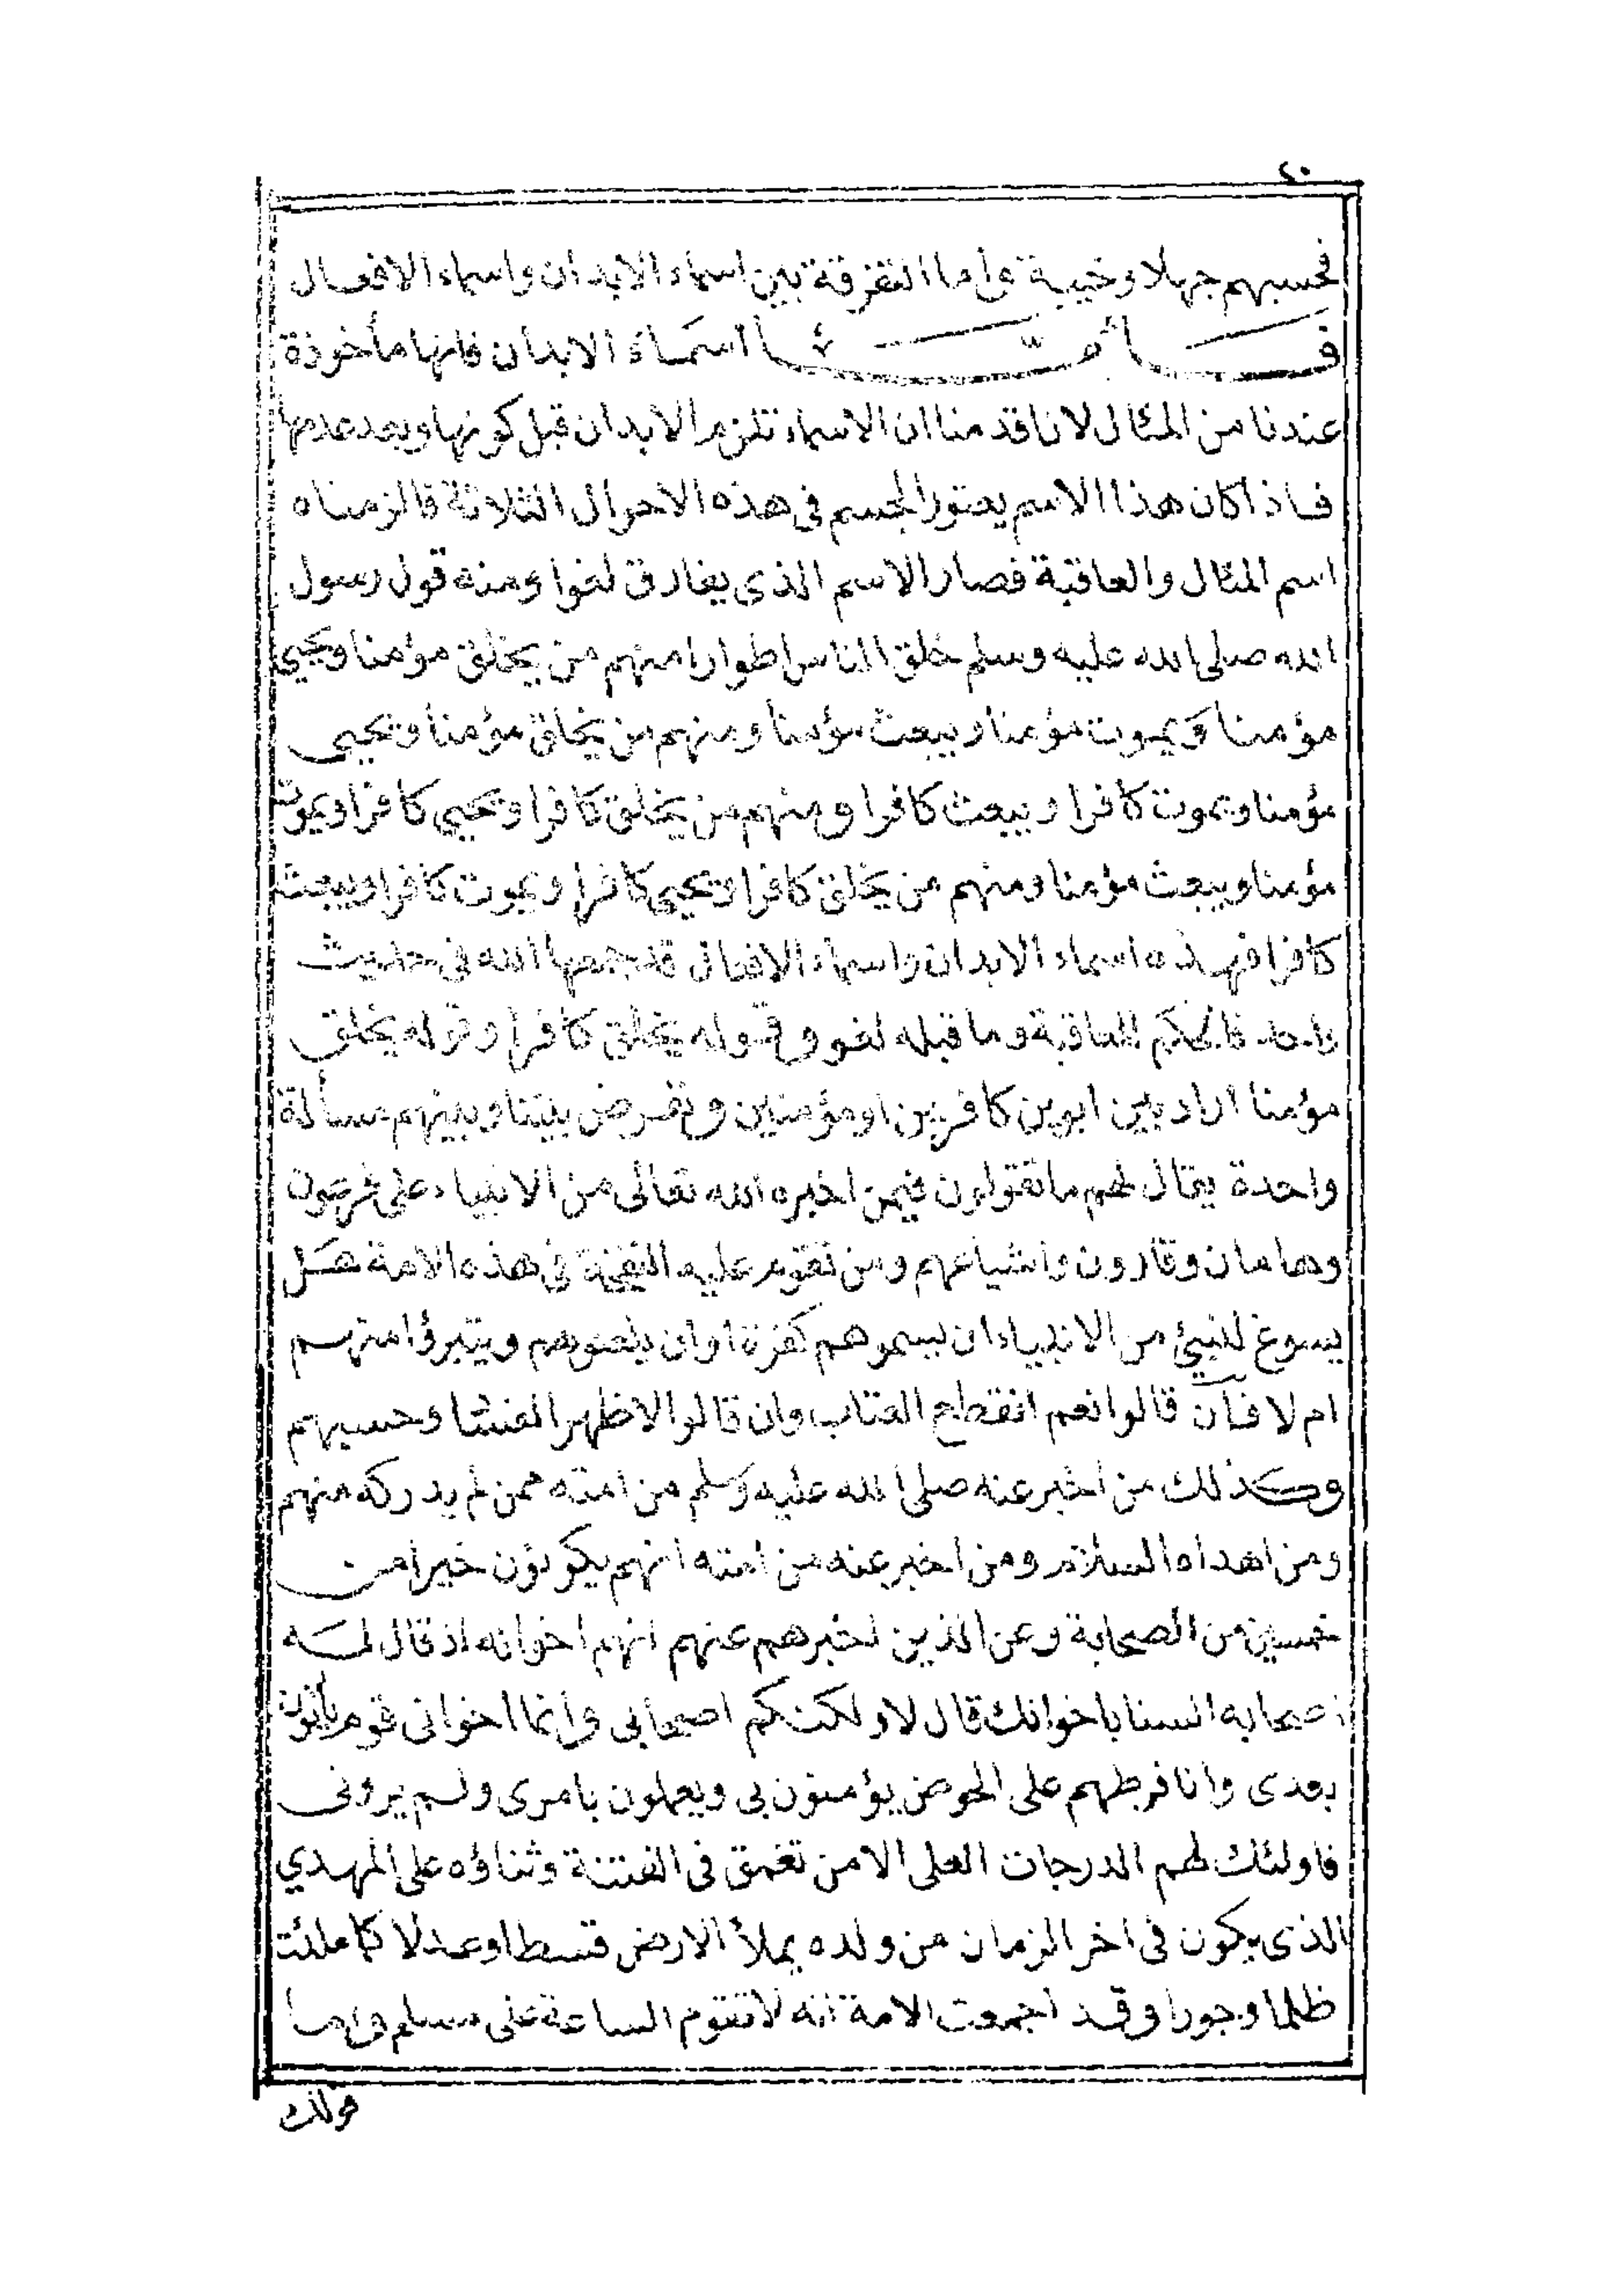 ٢٠
فحسبهم جهلا وخيبة واما التفرقة بين اسماء الابدان واسماء الافعال
فأما اسماء الابدان فانها مأخوذة
عندنا من المثال لانا قدمنا ان الاسماء تلزم الابدان قبل كونها وبعد عدمها
فاذا كان هذا الاسم يعتور الجسم في هذه الاحوال الثلاثة فالزمناه
اسم المثال والعاقبة فصار الاسم الذى يفارق لغوا ومنه قول رسول
الله صلى الله عليه وسلم خلق الناس اطوارا منهم من يخلق مؤمنا ويحيى
مؤمنا ويموت مؤمنا ويبعث مؤمنا ومنهم من يخلق مؤمنا ويحيى
مؤمنا ويموت كافرا ويبعث كافرا ومنهم من يخلق كافرا ويحيى كافرا ويموت
مؤمنا ويبعث مؤمنا ومنهم من يخلق كافرا ويحيى كافرا ويموت كافرا ويبعث
كافرا فهذه اسماء الابدان واسماء الافعال قد جمعها الله في حديث
واحد فالحكم للعاقبة وما قبله لغو وقوله يخلق كافرا وقوله يخلق
مؤمنا اراد بين ابوين كافرين او مؤمنين ونفرض بيننا وبينهم مسألة
واحدة يقال لهم ما تقولون فيمن اخبره الله تعالى من الانبياء على فرعون
وهامان وقارون واشياعهم ومن تقوم عليه في هذه الامة هل
يسوغ للنبيئ من الانبياء ان يسموهم كفرة او ان يلعنوهم ويتبرؤا منهم
ام لا فان قالوا نعم انقطع العتاب وان قالوا لا ظهر الغشا وحسبهم
وكذلك من اخبر عنه صلى الله عليه وسلم من امته ممن لم يدركه منهم
ومن اهداه السلام ومن اخبر عنه من امته انهم يكونون خيرا من
خمسين من الصحابة وعن الذين اخبرهم عنهم انهم اخوانه اذ قال له
اصحابه السنا باخوانك قال لا ولكنكم اصحابى وانما اخوانى قوم يأتون
بعدى وانا فرطهم على الحوض يؤمنون بى ويعملون بامرى ولم يرونى
فاولئك لهم الدرجات العلى الا من تغمق فى الفتنة وثناؤه على المهدي
الذى يكون فى اخر الزمان من ولده يملأ الارض قسطا وعدلا كما ملئت
ظلما وجورا وقد اجمعت الامة انه لا تقوم الساعة على مسلم واما